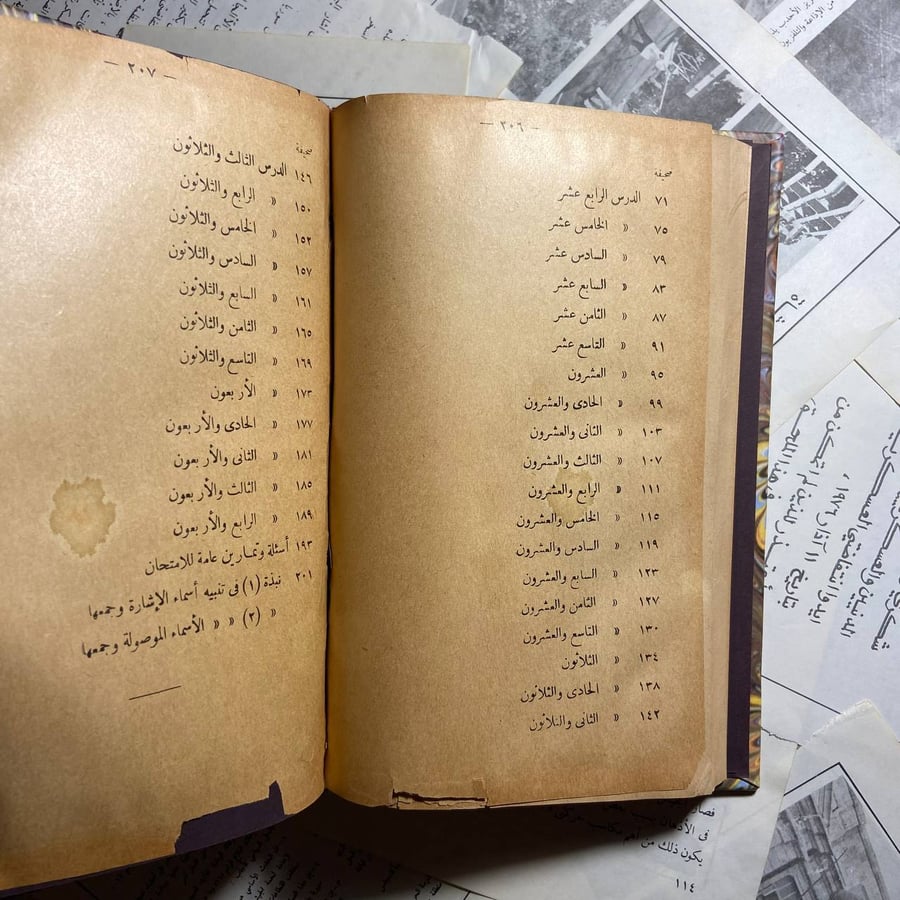 — ٢٠٦ —
صحيفة
٧١ الدرس الرابع عشر
٧٥ « الخامس عشر
٧٩ « السادس عشر
٨٣ « السابع عشر
٨٧ « الثامن عشر
٩١ « التاسع عشر
٩٥ « العشرون
٩٩ « الحادى والعشرون
١٠٣ « الثانى والعشرون
١٠٧ « الثالث والعشرون
١١١ « الرابع والعشرون
١١٥ « الخامس والعشرون
١١٩ « السادس والعشرون
١٢٣ « السابع والعشرون
١٢٧ « الثامن والعشرون
١٣٠ « التاسع والعشرون
١٣٤ « الثلاثون
١٣٨ « الحادى والثلاثون
١٤٢ « الثانى والثلاثون
— ٢٠٧ —
صحيفة
١٤٦ الدرس الثالث والثلاثون
١٥٠ « الرابع والثلاثون
١٥٢ « الخامس والثلاثون
١٥٧ « السادس والثلاثون
١٦١ « السابع والثلاثون
١٦٥ « الثامن والثلاثون
١٦٩ « التاسع والثلاثون
١٧٣ « الأربعون
١٧٧ « الحادى والأربعون
١٨١ « الثانى والأربعون
١٨٥ « الثالث والأربعون
١٨٩ « الرابع والأربعون
١٩٣ أسئلة وتمارين عامة للامتحان
٢٠١ نبذة (١) فى تنبيه أسماء الإشارة وجمعها
« (٢) « « الأسماء الموصولة وجمعها
تاريخ ١١ آذار ١٩٧٦
فى الأذهان
يكون ذلك من أهم
١١٤